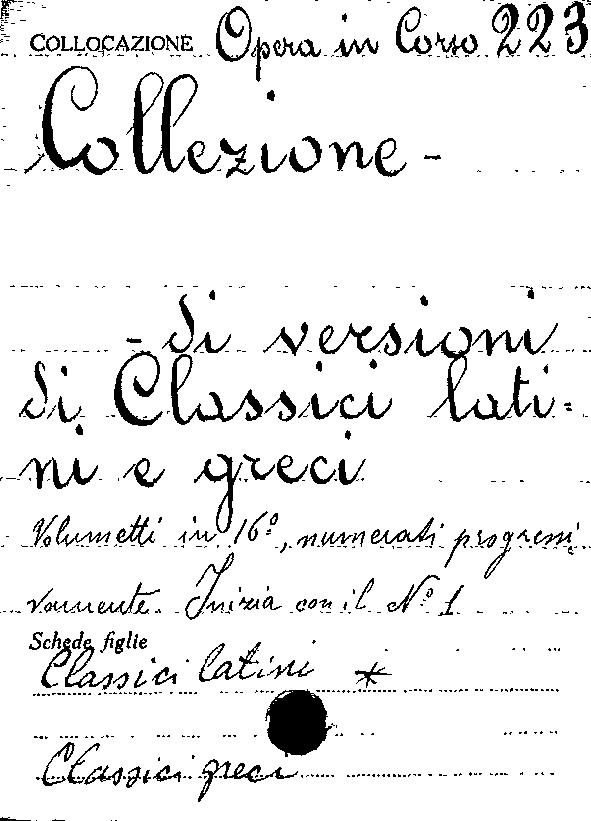 COLLOCAZIONE Opera in Corso 223
Collezione -
- di versioni
di Classici lati=
ni e greci
Volumetti in 16º, numerati progressi
vamente. Inizia con il Nº 1
Schede figlie
Classici latini *
Classici greci